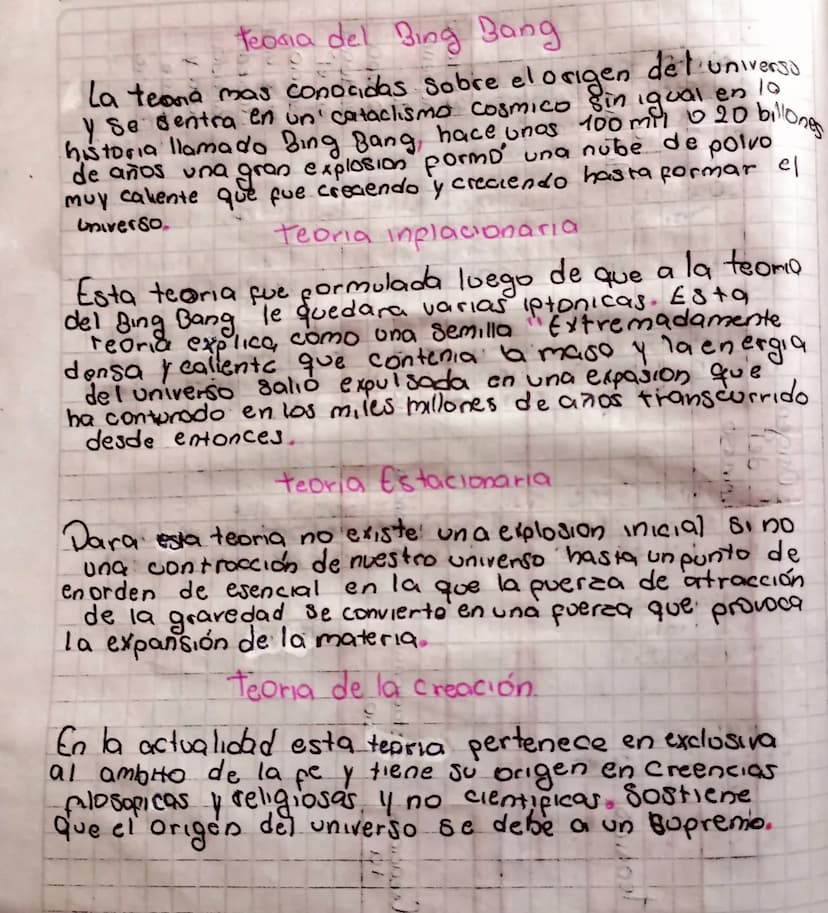 teoria del Bing Bang
La teoria mas conocidas sobre el origen del universo
y se sentra en un cataclismo cosmico sin igual en la
historia llamado Bing Bang, hace unos 100 mil o 20 billones
de años una gran explosion formo una nube de polvo
muy caliente que fue creciendo y creciendo hasta formar el
universo.
teoria inflacionaria
Esta teoria fue formulada luego de que a la teoria
del Bing Bang le quedara varias Esta
teoria explica, como una semilla "Extremadamente
densa y caliente que contenia la masa y la energia
del universo salio expulsada en una expasion que
ha contunado en los miles millones de años transcurrido
desde entonces.
teoria Estacionaria
Para esta teoria no existe una explosion inicial si no
una contracción de nuestro universo hasta un punto de
enorden de esencial en la que la fuerza de atracción
de la gravedad se convierte en una fuerza que provoca
la expansión de la materia.
Teoria de la creación.
En la actualidad esta teoria pertenece en exclusiva
al ambito de la fe y tiene su origen en creencias
filosoficas y religiosas, y no cientificas. Sostiene
que el origen del universo se debe a un Supremo.